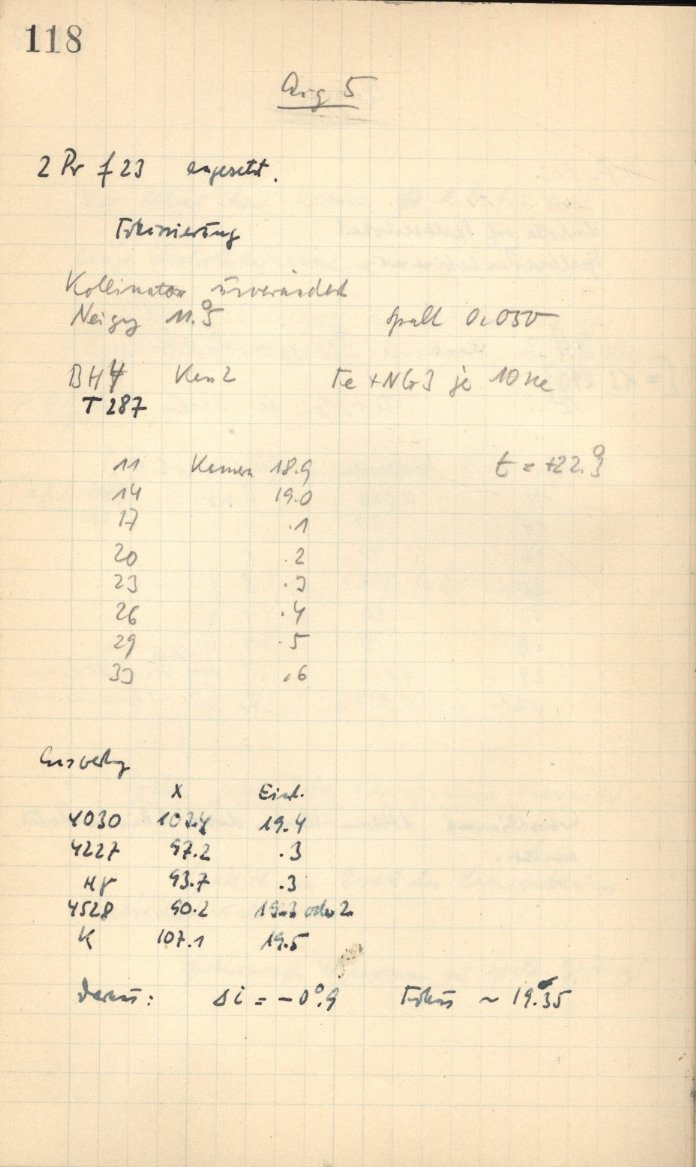 118
Aug 5
2 Pr f 23 angesetzt.
Fokussierung
Kollimator unverändert
Neigg 11.°5 Spalt 0.050
BH4 Kem 2 Fe + NGr3 je 10
T 287
11 Kamera 18.9 t = +22.°3
14 19.0
17 .1
20 .2
23 .3
26 .4
29 .5
33 .6
X Einst.
4030 102.4 19.4
4227 97.2 .3
Hγ 93.7 .3
4528 90.2 19.3 oder 2
K 107.1 19.5
daraus: Δi = -0°.9 Fokus ~ 19.35